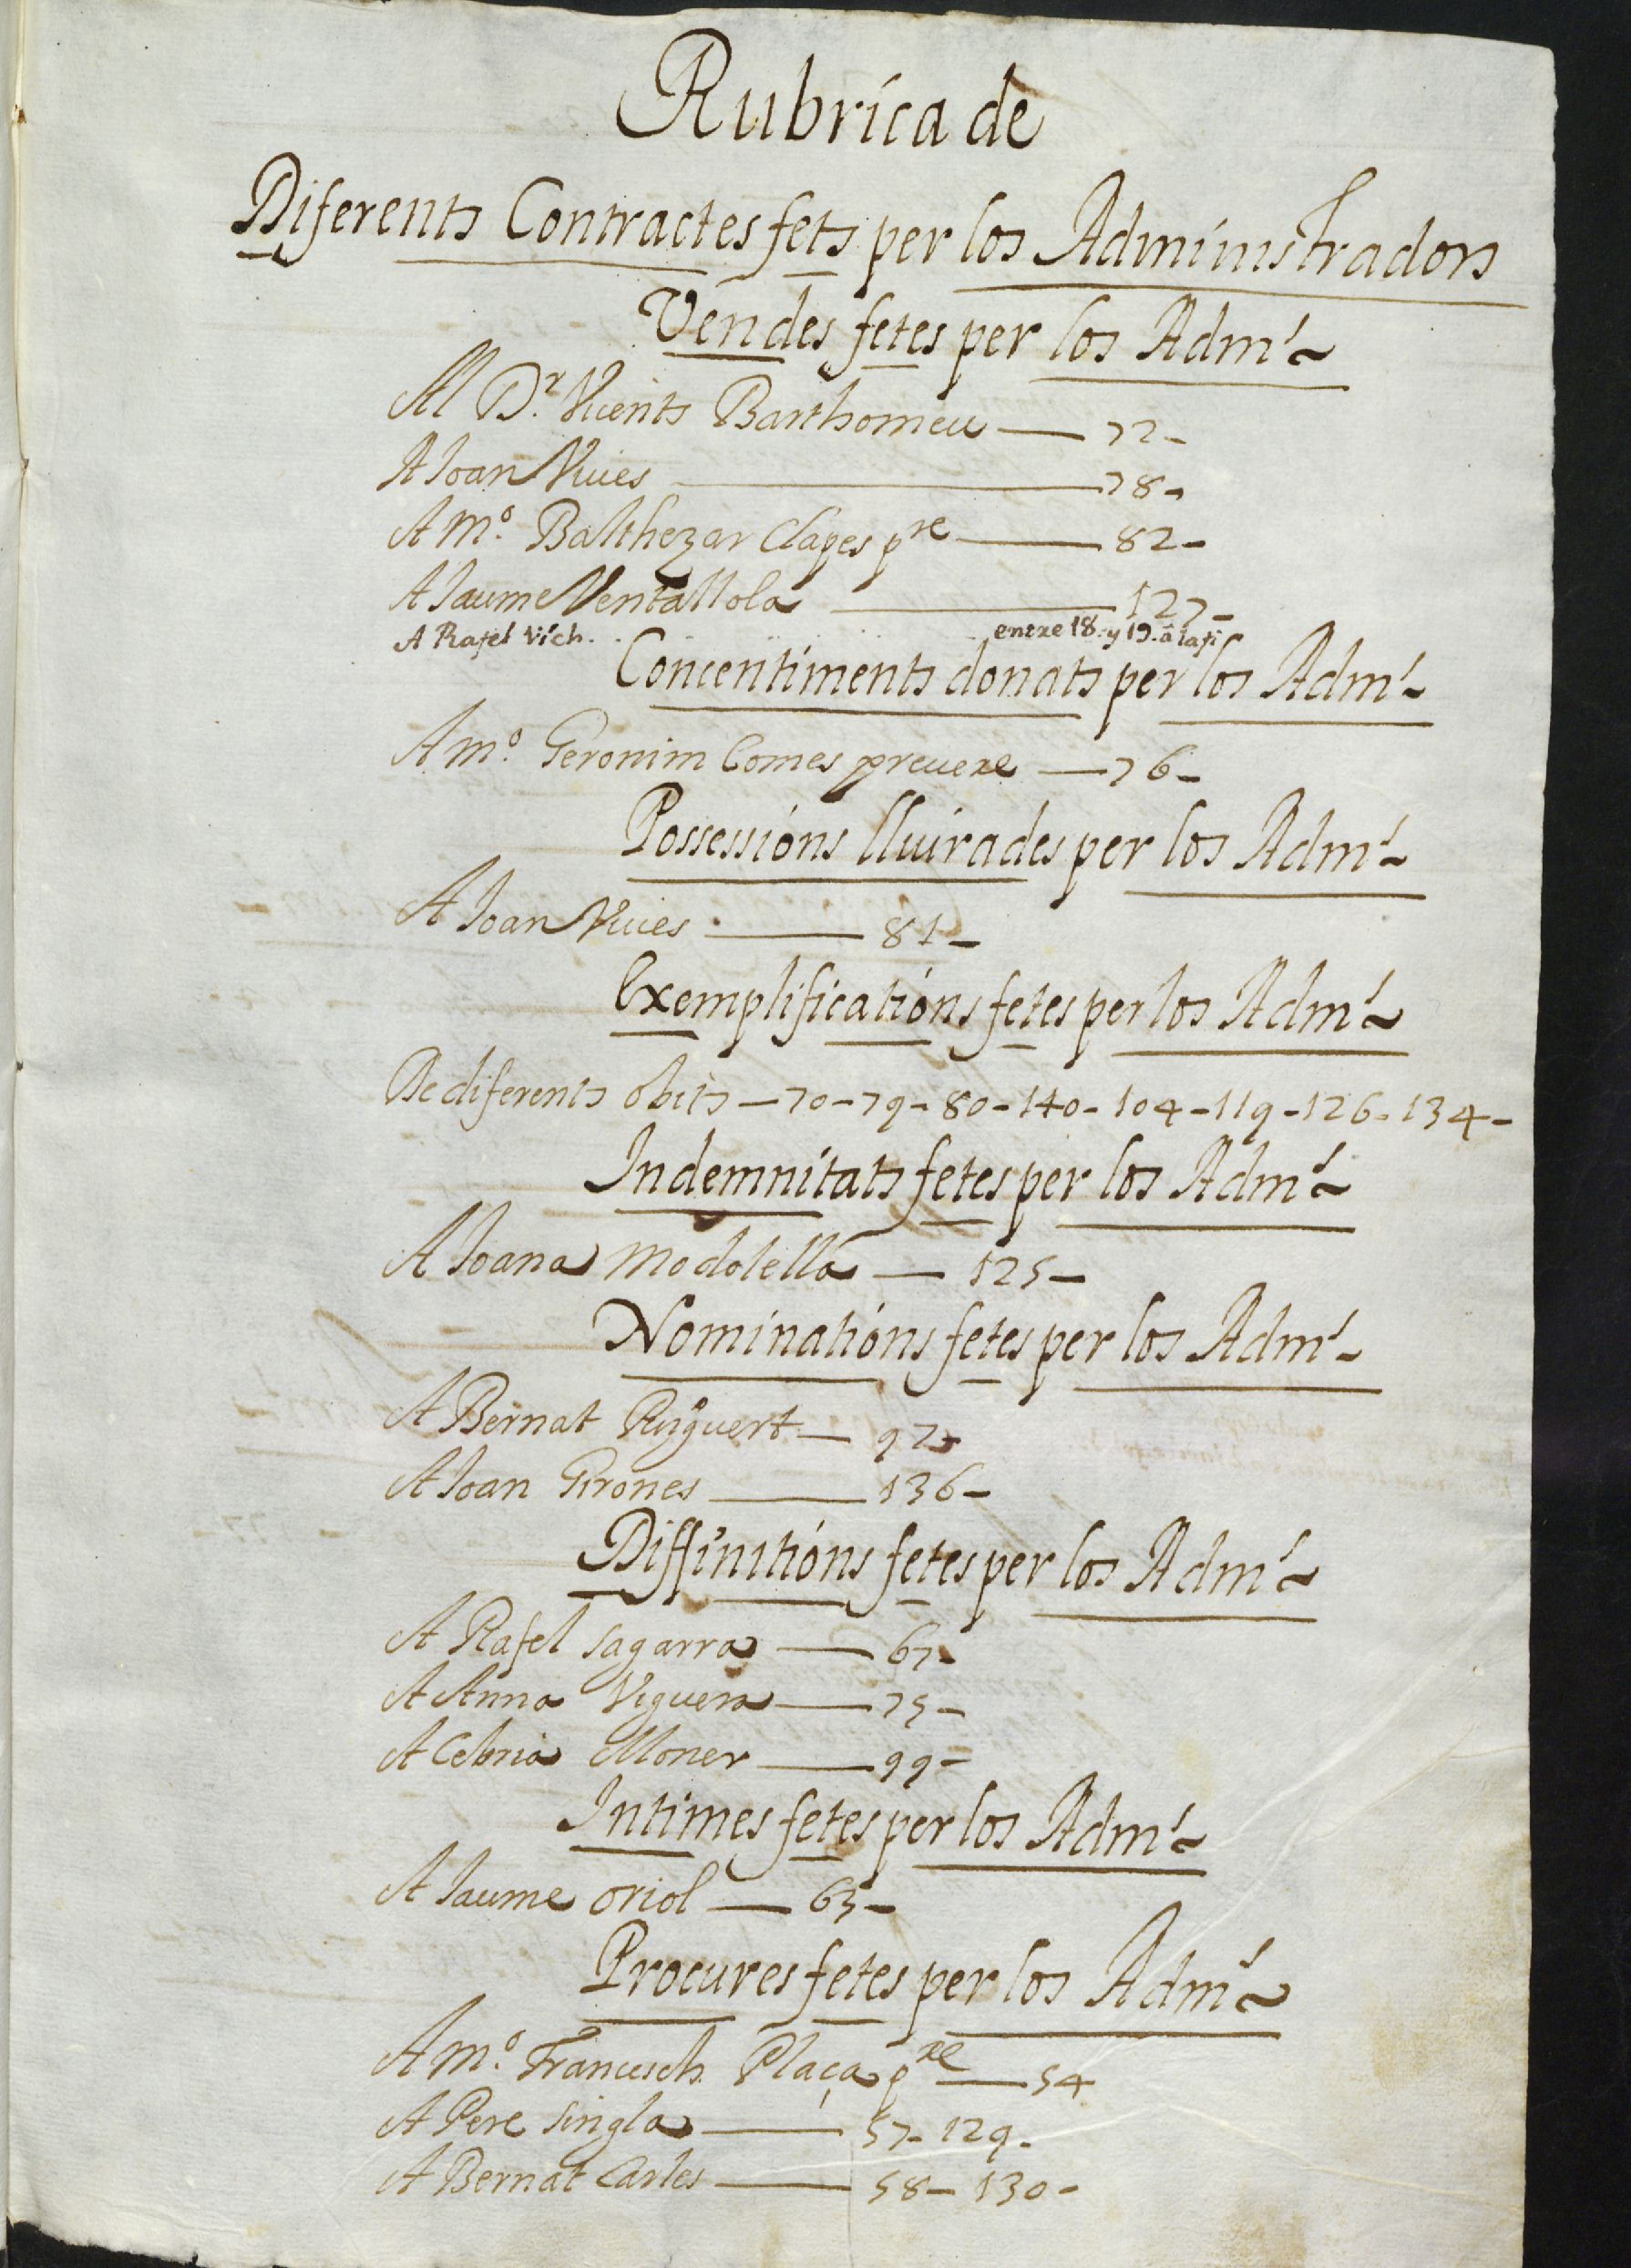 Rubrica de
Diferents Contractes fets per los Administradors
Vendes fetes per los Adm.
Al Dr. Vicents Barthomeu — 72 -
A Joan Vives — 78 -
A Mº. Balthezar Clapes pre — 82 -
A Jaume Ventallola — 127 -
A Rafel Vich. . entre 18. y 19. â la fi
Concentiments donats per los Adm.
A mº. Geronim Comes prevere — 76 -
Possessións lluirades per los Adm.
A Joan Vives — 81 -
Exemplificatións fetes per los Adm.
De diferents obits — 70 - 79 - 80 - 140 - 104 - 119 - 126 - 134 -
Indemnitats fetes per los Adm.
A Joana Modolella — 125 -
Nominatións fetes per los Adm.
A Bernat Puiguert — 97 -
A Joan Girones — 136 -
Diffinitións fetes per los Adm.
A Rafel Sagarra — 67 -
A Anna Viguera — 75 -
A Cebria Moner — 99 -
Intimes fetes per los Adm.
A Jaume Oriol — 65 -
Procures fetes per los Adm.
A mº. Francesch Plaça pre — 54
A Pere Singla — 57 - 129 -
A Bernat Carles — 58 - 130 -